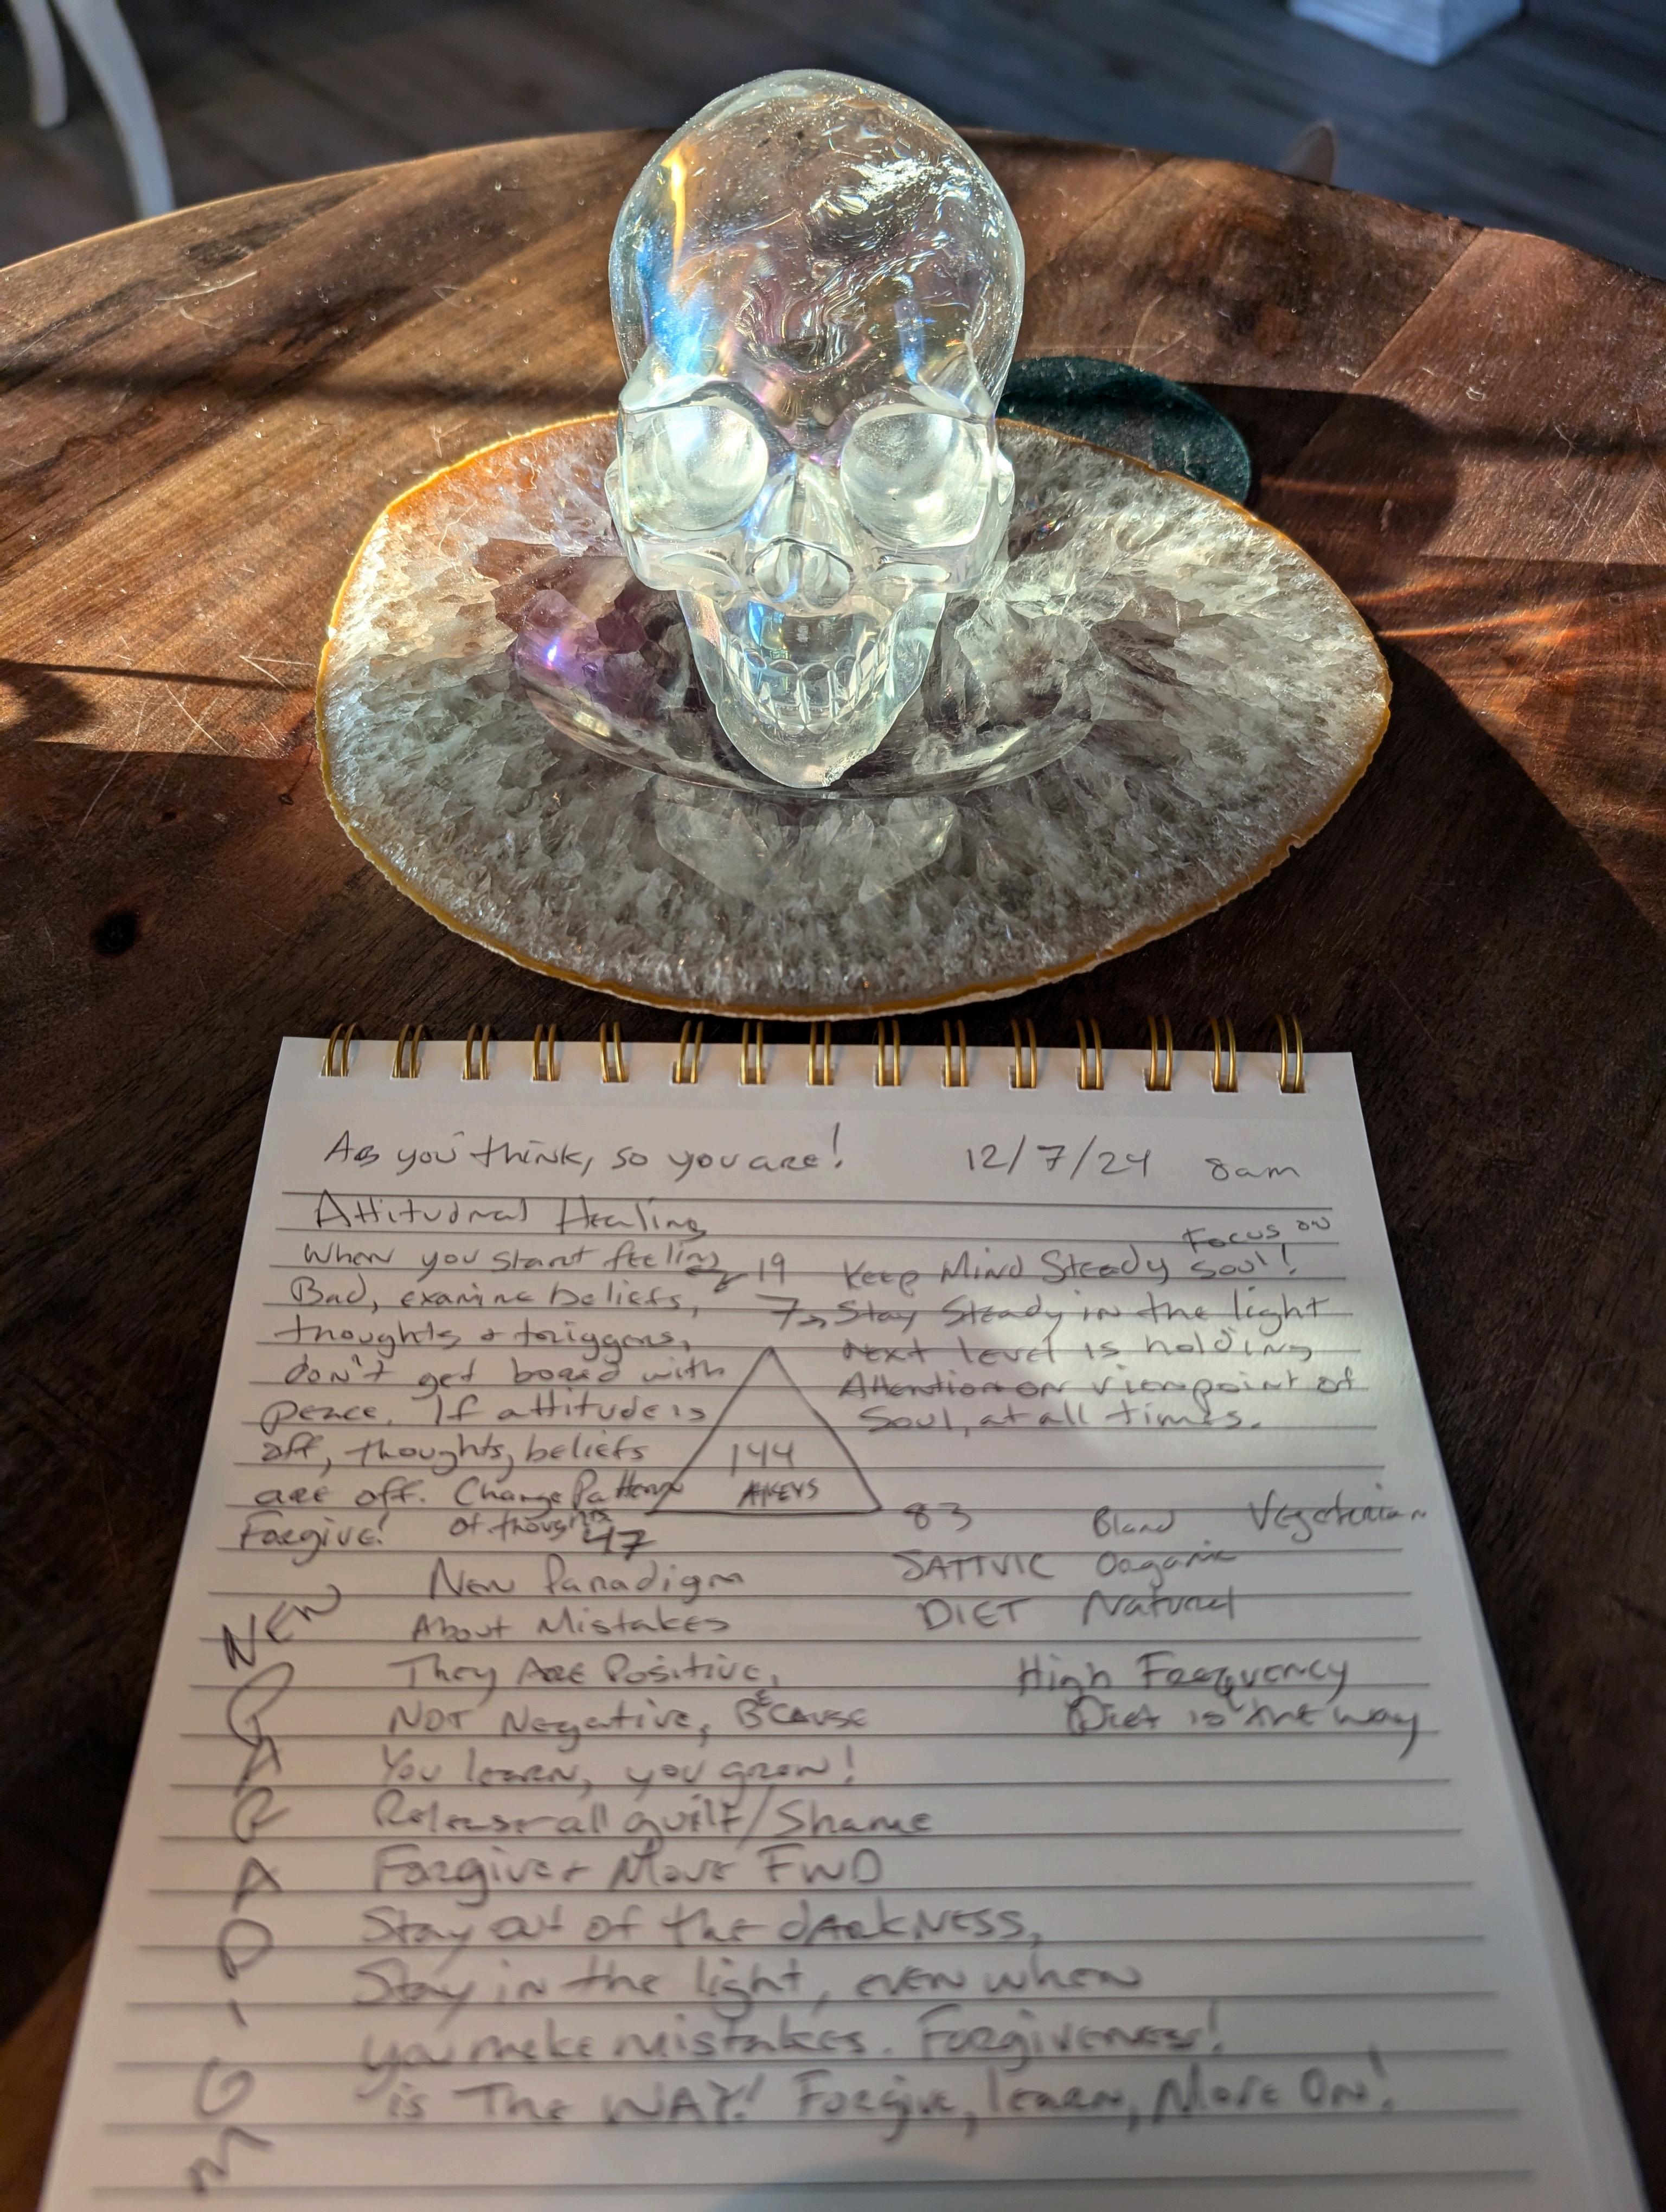 As you think, so you are! 12/7/24 8am
Attitudinal Healing
When you start feeling
Bad, examine beliefs,
thoughts & triggers,
don't get bored with
peace. If attitude is
off, thoughts, beliefs
are off. Change Pattern
Forgive! of thoughts
19
7
144
47
83
Focus on
Keep Mind Steady Soul!
Stay Steady in the light
Next level is holding
Attention on viewpoint of
Soul, at all times.
Bland Vegetarian
SATTVIC Organic
DIET Natural
High Frequency
Diet is the way
NEW
PARADIGM
New Paradigm
About Mistakes
They Are Positive,
NOT Negative, BECAUSE
You learn, you grow!
Release all guilt/Shame
Forgive + Move FWD
Stay out of the dARKNESS,
Stay in the light, even when
you make mistakes. Forgiveness!
is The WAY! Forgive, learn, Move On!